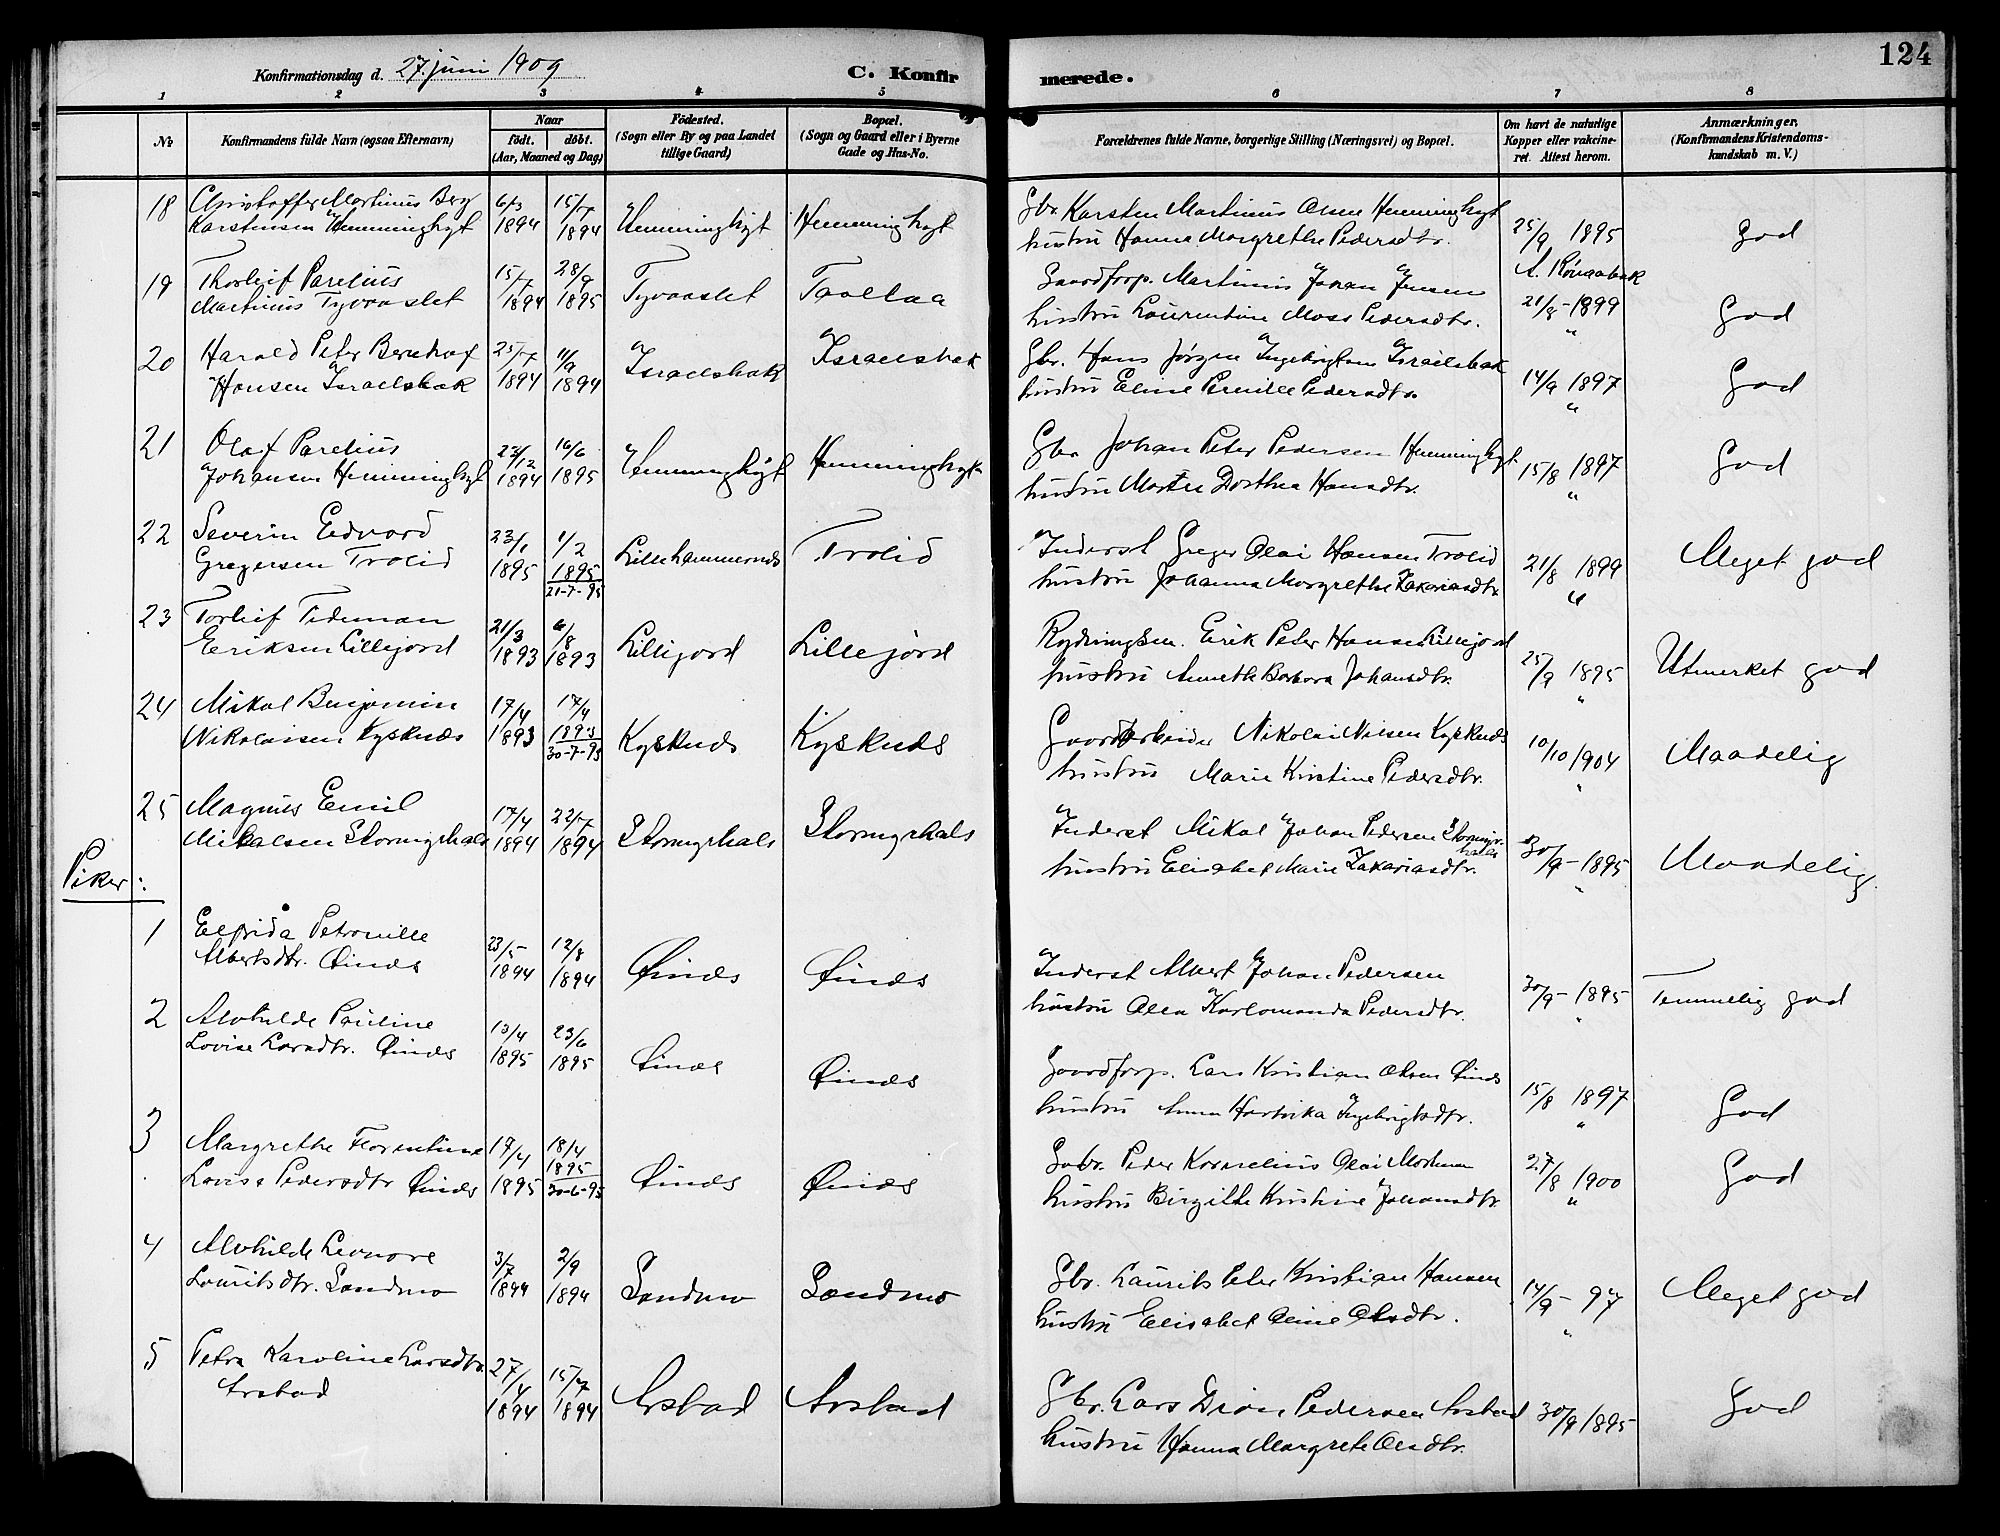 124
Konfirmationsdag d. 27. juni 1909
C. Konfirmerede.
1 2 3 4 5 6 7 8
No
Konfirmandens fulde Navn (ogsaa Efternavn)
Naar
födt. döbt.
(Aar, Maaned og Dag)
Födested.
(Sogn eller By og paa Landet
tillige Gaard)
Bopæl.
(Sogn og Gaard eller i Byerne
Gade og Hus-No.
Forældrenes fulde Navne, borgerlige Stilling (Næringsvei) og Bopæl.
Om havt de naturlige
Kopper eller vakcine-
ret. Attest herom.
Anmærkninger.
(Konfirmandens Kristendoms-
kundskab m. V.)
18 Christoffer Martinus Berg 15/7 Gbr. Karsten Martinus Olsen Hemminghyt
Karstensen Hemminghyt 1894 1894 Hemminghyt Hemminghyt hustru Hanna Margrethe Pedersdtr. 25/9 1895 God
19 Thorleif Parelius 15/7 28/9 Gaardforp. Martinus Johan Jensen
Martinus Tyvaaslet 1894 1895 Tyvaaslet hustru Laurentine Moss Pedersdtr. 21/8-1899 God
20 Harald Peter Bernhof 25/7 11/9 Israelsbak Gbr. Hans Jörgen Ingebrigtsen Israelsbak
Hansen Israelsbak 1894 1894 Israelsbak hustru Eline Pernille Pedersdtr. 14/9 1897 " God
21 Olaf Parelius 23/12 16/6 Gbr. Johan Peter Pedersen Hemminghyt
Johansen Hemminghyt 1894 1895 Hemminghyt Hemminghyt hustru Dorthea Hansdtr. 15/8 1897 " God
22 Severin Edvard 23/1 1/2 Trolid Inderst Greger Olai Hansen Trolid
Gregersen Trolid 1895 1895 21-7-95 Lillehammernes hustru Johanna Margrethe Zakariasdtr. 21/8 1899 " Meget god
23 Torleif Tideman 21/3 6/8 Rydningsm. Erik Peter Hansen Lillejord
Eriksen Lillejord 1893 1893 Lillejord Lillejord hustru Annette Barbara Johansdtr. 25/9 1895 " Utmerket god
24 Mikal Benjamin 17/4 17/4 Gaardarbeider Nikolai Nilsen Kysknes
Nikolaisen Kysknes 1893 1893 30-7-93 Kysknes Kysknes hustru Marie Kristine Pedersdtr. 10/10 1904 " Maadelig
25 Magnus Emil 17/4 22/7 Inderst Mikal Johan Pedersen Stormyrhals
Mikalsen Stormyrhals 1894 1894 Stormyrhals Stormyrhals hustru Elisabet Marie Zakariasdtr. 30/9-1895 " Maadelig.
Piker:
1 Elfrida Petronille 23/5 12/8 Inderst Albert Johan Pedersen
Albertsdtr. Öines 1894 1894 Öines Öines hustru Olea Karlomanda Pedersdtr. 30/9-1895 " Temmelig god
2 Alvhilde Pauline 13/4 23/6 Gaardforp. Lars Kristian Olsen Öines
Lovise Larsdtr. Öines 1895 1895 Öines Öines hustru Anna Hartvika Ingebrigtsdtr. 15/8 1897 " God
3 Margrethe Florentine 17/4 18/4 1895 Gbr. Peder Kornelius Olai Mortensen
Lovise Pedersdtr Öines 1895 30-6-95 Öines Öines hustru Birgitte Kristine Johansdtr. 27/8 1900 " God
4 Alvhilde Leonore 3/7 2/9 Gbr. Laurits Peter Kristian Hansen
Lauritsdtr. Sandmo 1894 1894 Sandmo Sandmo hustru Elisabet Oline Olsdtr. 14/9-97 " Meget god
5 Petra Karoline Larsdtr. 27/4 15/7 Gbr. Lars Pedersen Arstad
Arstad 1894 1894 Arstad Arstad hustru Hanna Margrete Olsdtr. 30/9 1895 God